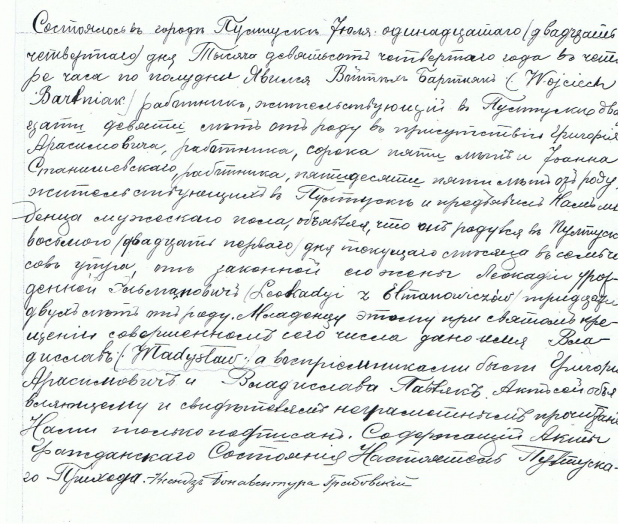 Состоялось въ городѣ Пултускѣ Іюля одинадцатаго /двадцать
четвертаго/ дня Тысяча девятьсотъ четвертаго года въ четы
ре часа по полудни. Явился Войтѣхъ Бартнякъ (Wojciech
Bartniak) работникъ, жительствующій въ Пултускѣ два
дцати девяти лѣтъ отъ роду въ присутствіи Григорія
Арасимовича, работника, сорока пяти лѣтъ и Іоанна
Станишевскаго, работника, пятидесяти пяти лѣтъ отъ роду,
жительствующихъ въ Пултускѣ и предъявилъ Намъ мла
денца мужескаго пола, объявляя, что онъ родился въ Пултускѣ
восьмого /двадцать перваго/ дня текущаго мѣсяца въ семь ча
совъ утра, отъ законной его жены Леокадіи урож
денной (Leokadyi z
двухъ лѣтъ отъ роду. Младенцу этому при святомъ кре-
щеніи совершенномъ сего числа дано имя Вла-
диславъ (Władysław) а воспріемниками были Григорій
Арасимовичъ и Владислава Актъ сей объя
вляющему и свидѣтелямъ неграмотнымъ прочитанъ
Нами только подписанъ. Содержащій Акты
Гражданскаго Состоянія Настоятель Пултуска-
го Прихода. Ксендзъ Бонавентура